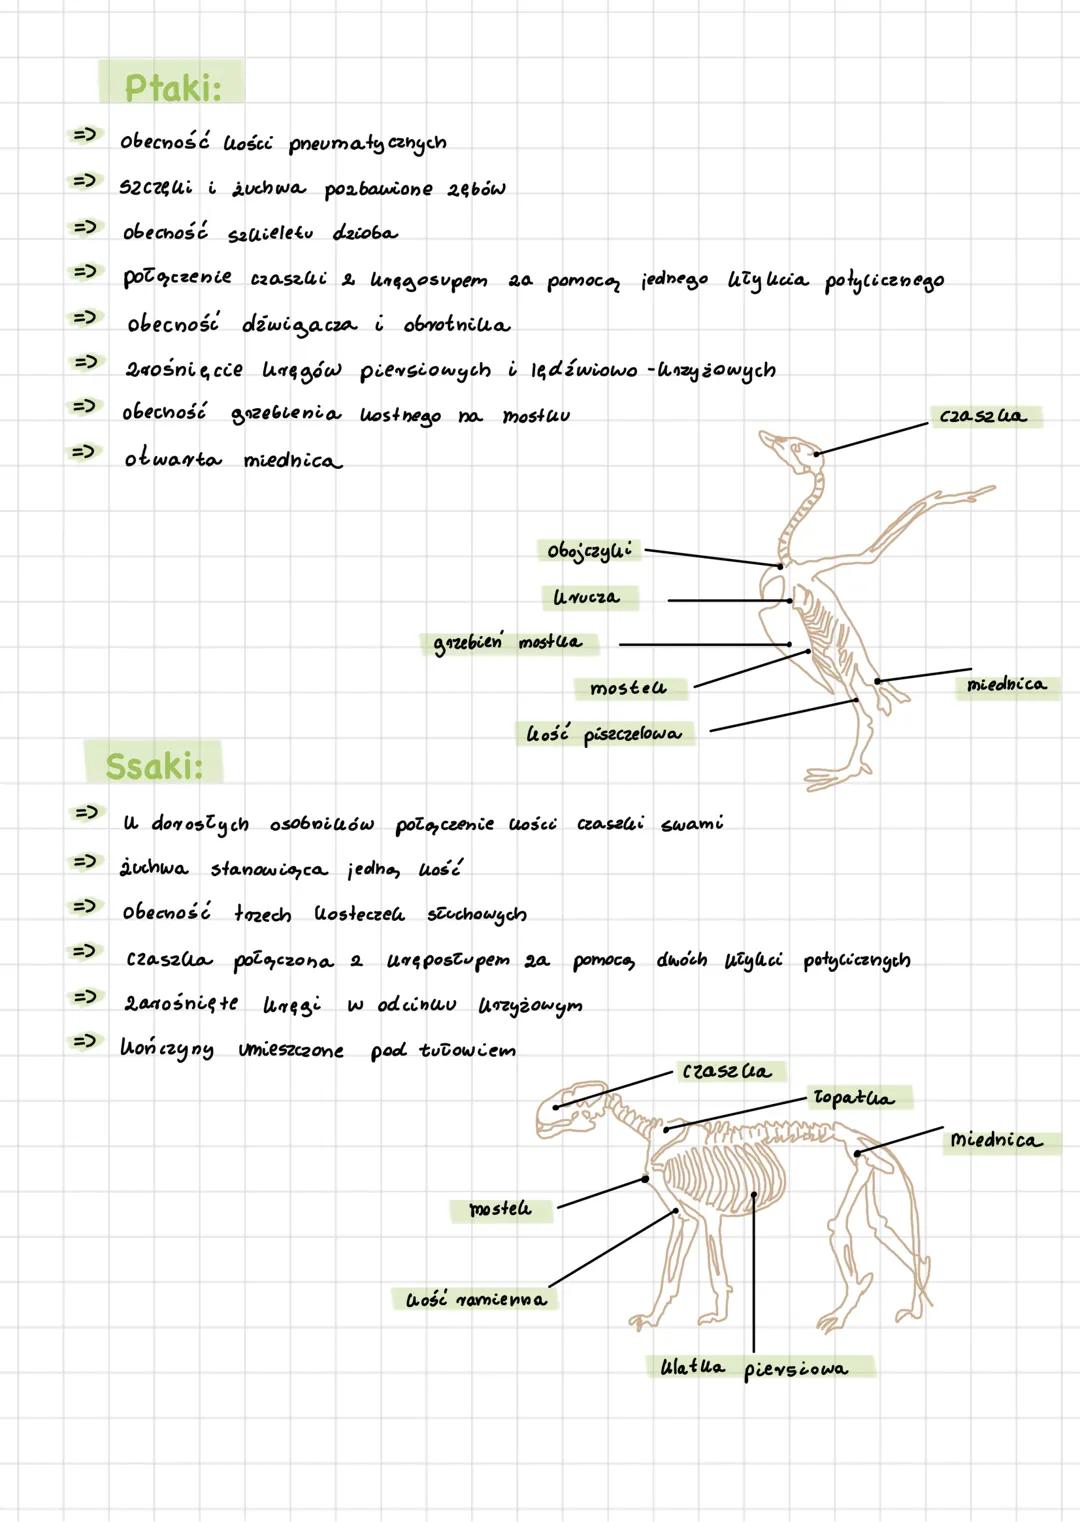 Ptaki:
=> obecność kości pneumatycznych
=> szczęki i żuchwa pozbawione zębów
=> obecność szkieletu dzioba
=> połączenie czaszki z kręgosupem za pomocą jednego kłykcia potylicznego
=> obecność dźwigacza i obrotnika
=> zrośnięcie kręgów piersiowych i lędźwiowo-krzyżowych
=> obecność grzebienia kostnego na mostku
=> otwarta miednica
czaszka
obojczyki
krucza
grzebień mostka
mostek
miednica
kość piszczelowa
Ssaki:
=> u dorosłych osobników połączenie kości czaszki szwami
=> żuchwa stanowiąca jedną kość
=> obecność trzech kosteczek słuchowych
=> czaszka połączona z kręgosłupem za pomocą dwóch kłykci potylicznych
=> zarośnięte kręgi w odcinku krzyżowym
=> kończyny umieszczone pod tułowiem
czaszka
łopatka
miednica
mostek
kość ramienna
klatka piersiowa